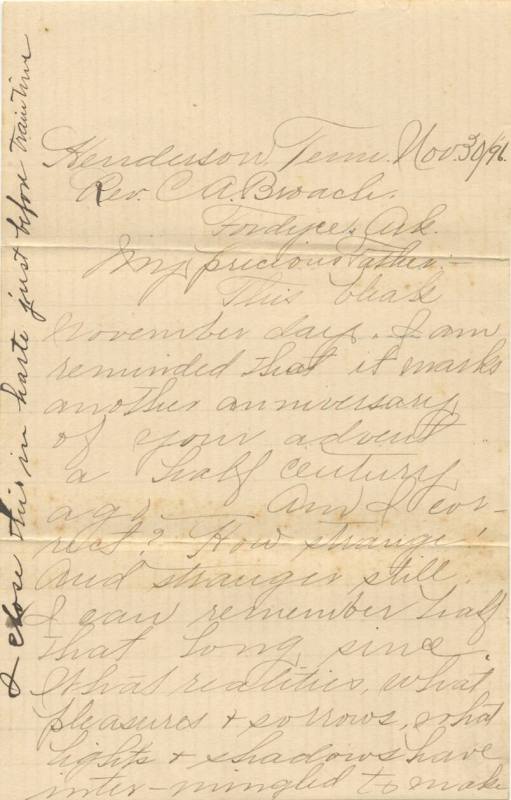 Henderson, Tenn. Nov. 30/96.
Rev. C A. Broach.
Fordyce, Ark.
My precious Father:-
This bleak
November day. I am
reminded that it marks
another anniversary
of your advent
a half century
ago — Am I cor-
rect? How strange!
And stranger still.
I can remember half
that long since.
What realities, what
pleasures & sorrows, what
lights & shadows have
inter-mingled to make
I close this in haste just before train time